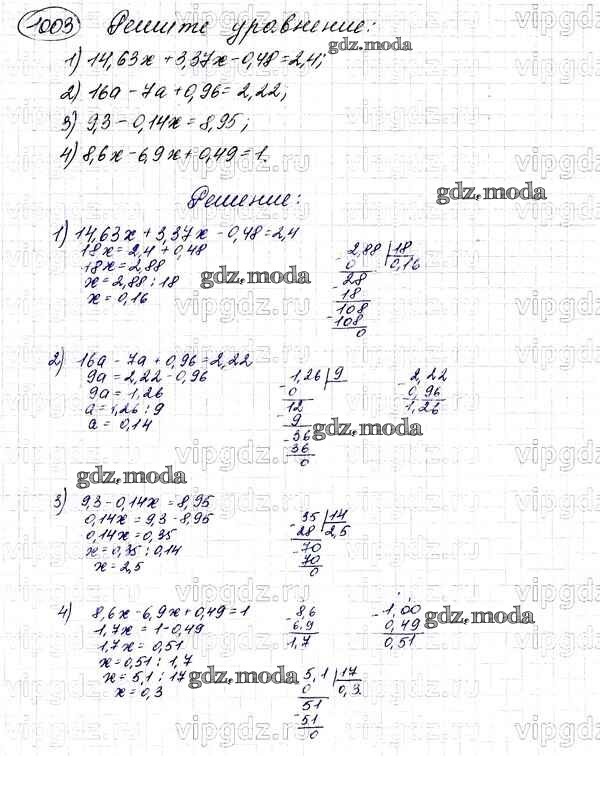 1003 Решите уравнение:
gdz.moda
1) 14,63x + 3,37x - 0,48 = 2,4;
2) 16a - 7a + 0,96 = 2,22;
3) 9,3 - 0,14x = 8,95;
4) 8,6x - 6,9x + 0,49 = 1.
Решение:
gdz.moda
1) 14,63x + 3,37x - 0,48 = 2,4
18x = 2,4 + 0,48
18x = 2,88
x = 2,88 : 18
x = 0,16
gdz.moda
- 2,88 | 18
0 0,16
- 28
18
- 108
108
0
2) 16a - 7a + 0,96 = 2,22
9a = 2,22 - 0,96
9a = 1,26
a = 1,26 : 9
a = 0,14
- 1,26 | 9
0
12
- 9
- 36
36
0
- 2,22
0,96
1,26
gdz.moda
gdz.moda
3) 9,3 - 0,14x = 8,95
0,14x = 9,3 - 8,95
0,14x = 0,35
x = 0,35 : 0,14
x = 2,5
- 35 | 14
28 2,5
- 70
70
0
4) 8,6x - 6,9x + 0,49 = 1
1,7x = 1 - 0,49
1,7x = 0,51
x = 0,51 : 1,7
x = 5,1 : 17
x = 0,3
- 8,6
6,9
1,7
- 1,00
0,49
0,51
gdz.moda
gdz.moda
- 5,1 | 17
0 0,3
51
- 51
0
vipgdz.ru